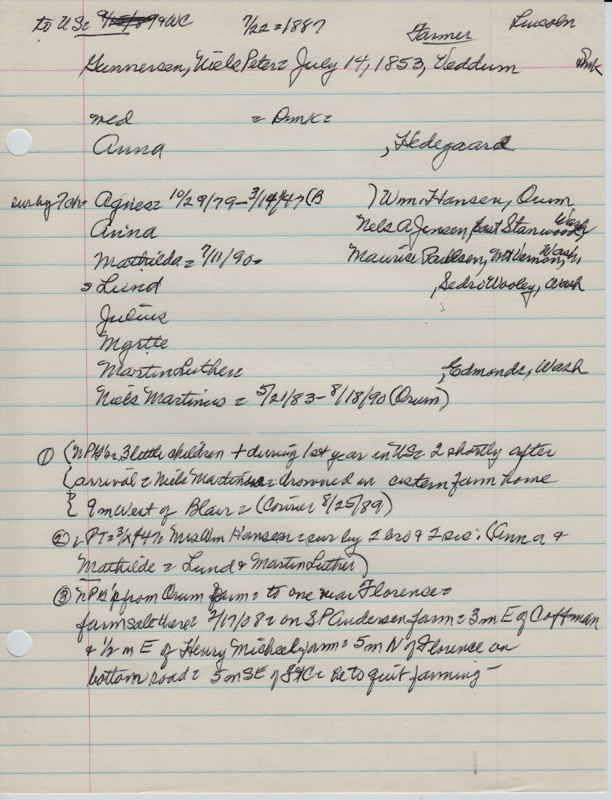 to US= WC 7/22=1887 Farmer Lincoln
Gunnersen, Niels Peter= July 14, 1853, Veddum Dmk
med = Dmk=
Anna , Hedegaard
sur by 7 ch= Agnes= 10/29/79-3/14/47 (B ) Wm. Hansen, Orum
Anna Nels A Jensen, East Stanwood, Wash
Mathilda= 7/11/90= Maurice Paulsen, Mt Vernon, Wash,
=Lund , Sedro Wooley, Wash
Julius
Myrtle
Martin Luther , Edmonds, Wash
Niels Martinus = 5/21/83-8/18/90 (Orum)
① (NPG's= 3 little children + during 1st year in US= 2 shortly after
arrival= Niels Martinus= drowned in cistern farm home
9 m West of Blair= (Courier 8/25/89)
② Mrs Wm Hansen= sur by 2 bro & 2 sis: (Anna &
Mathilde = Lund & Martin Luther)
③ from Orum farm= to one near Florence=
farm sale there= 2/17/08= on SP Andersen farm= 3 m E of Coffman
& 1/2 m E of Henry Michael farm= 5 m N of Florence on
bottom road= 5 m SE of = to quit farming-